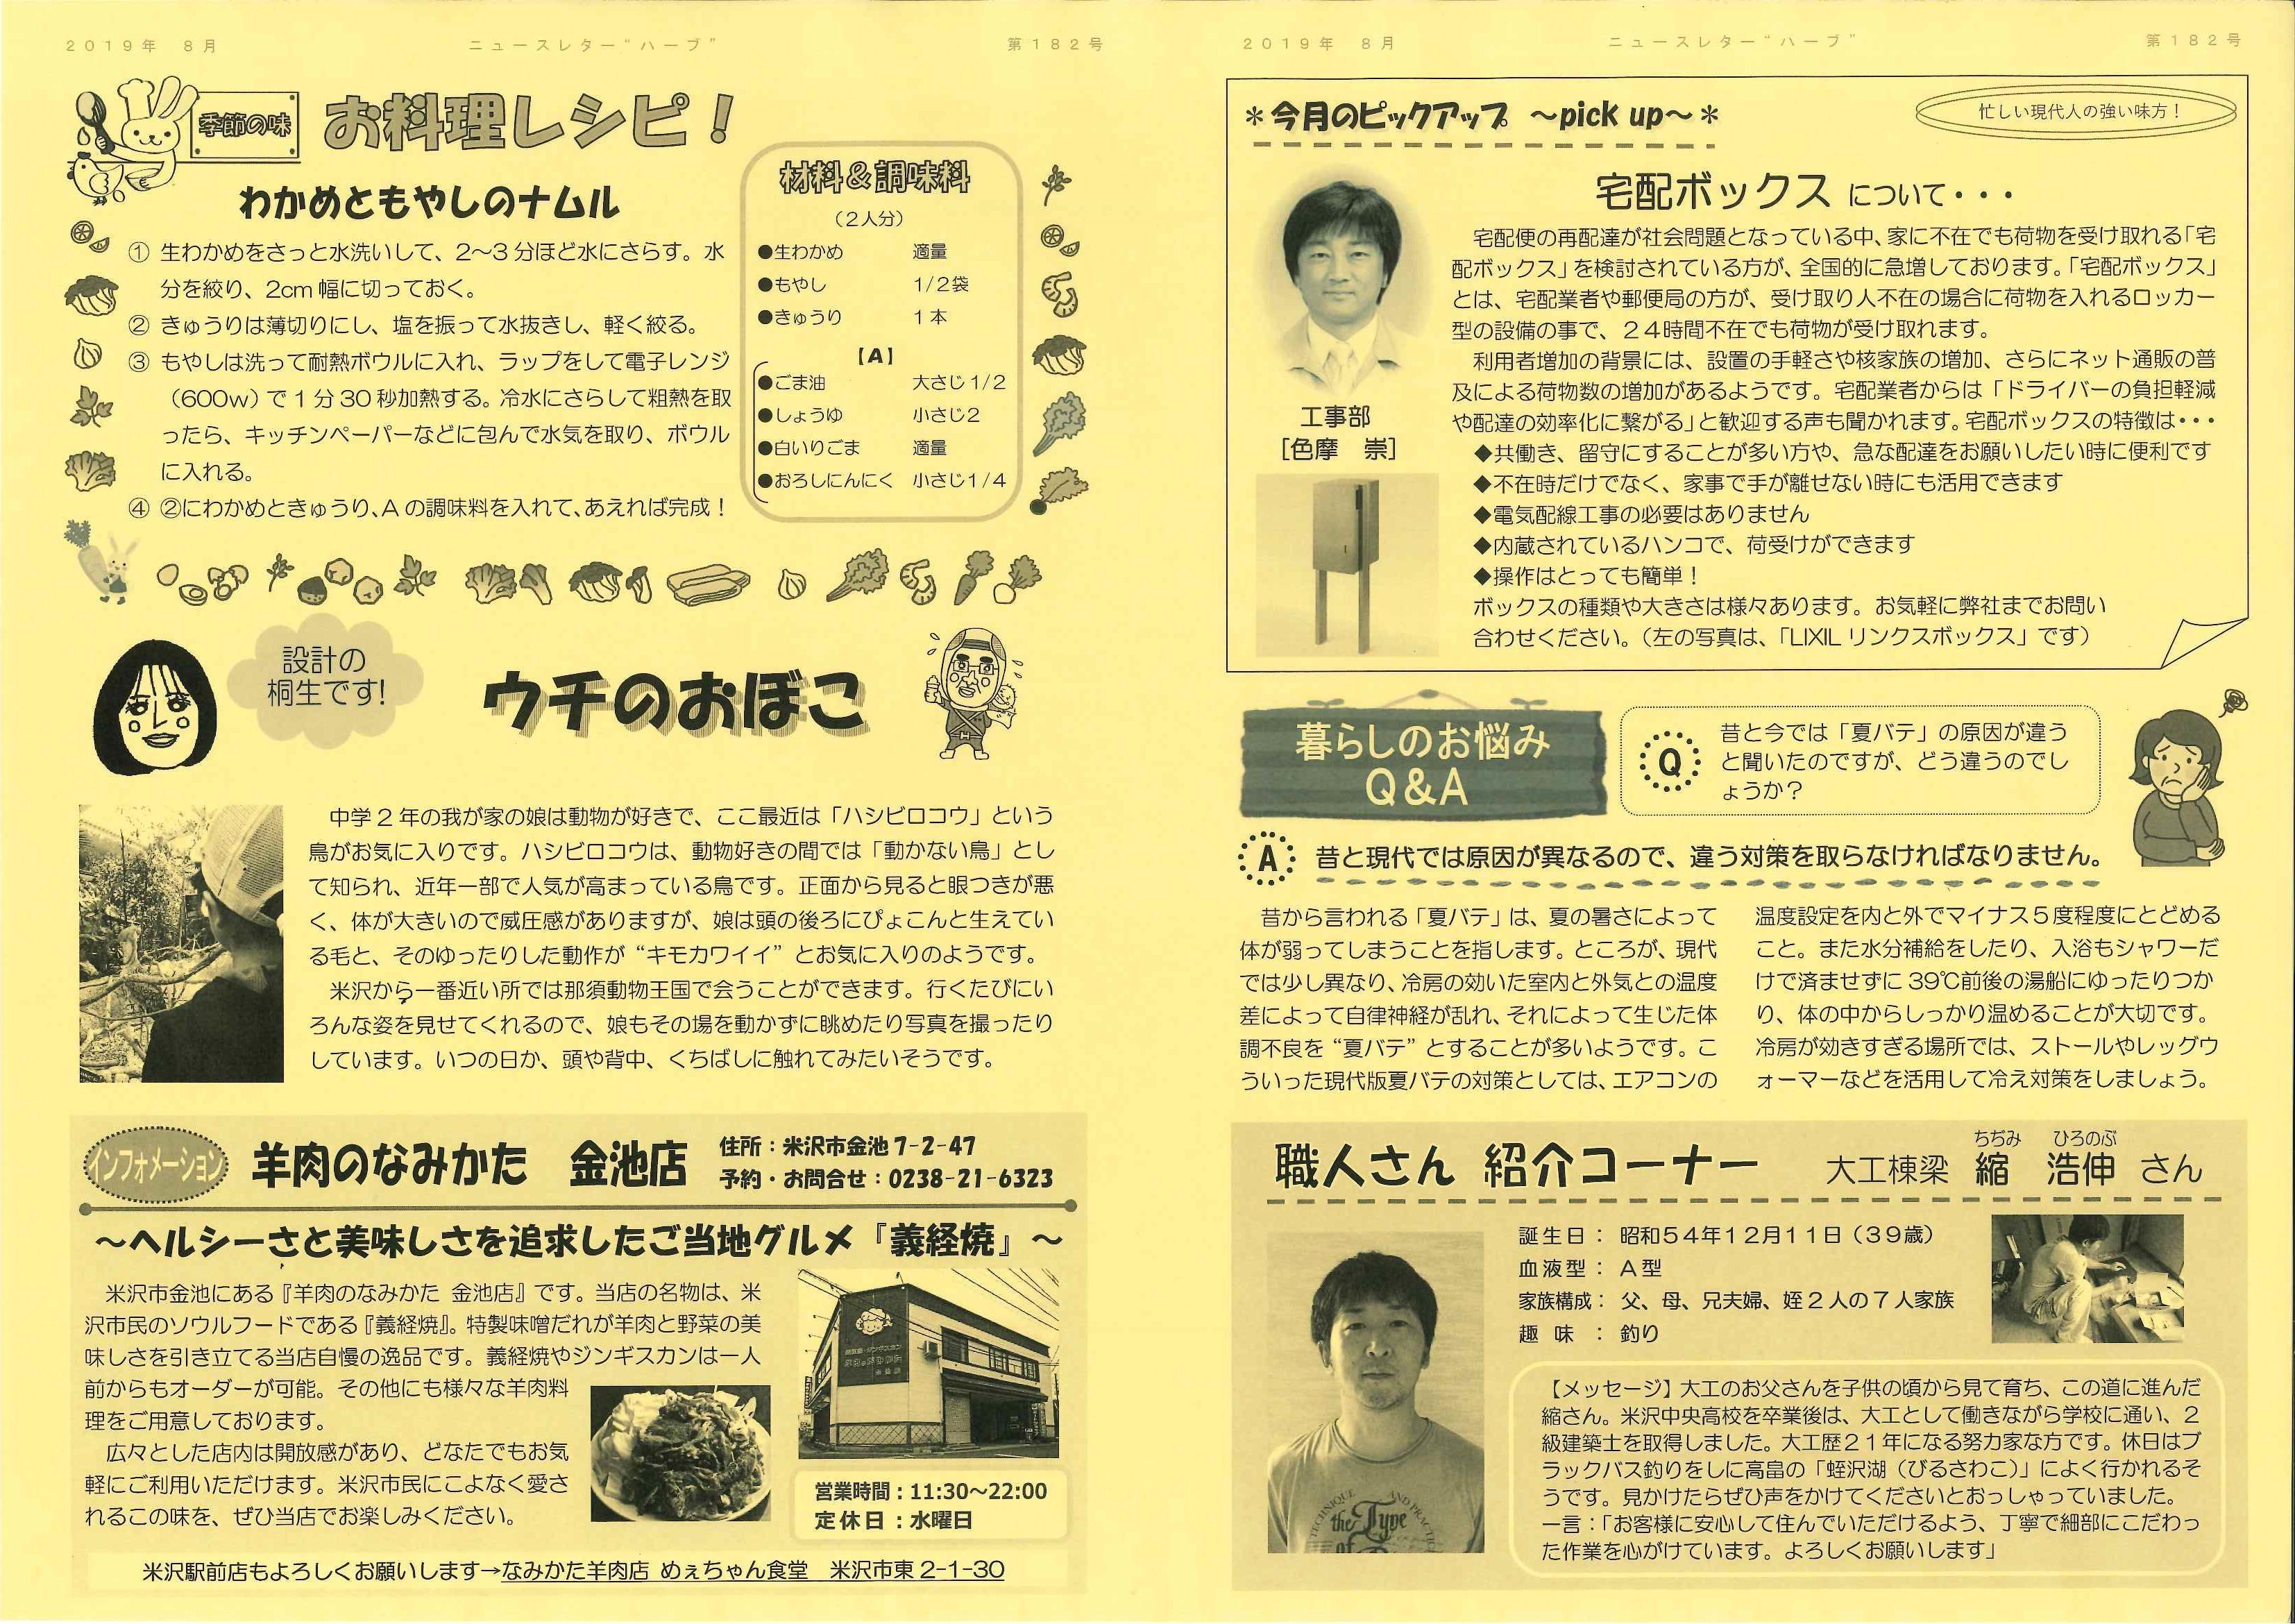 2019年 8月
ニュースレター“ハーブ”
第182号
季節の味
お料理レシピ！
わかめともやしのナムル
① 生わかめをさっと水洗いして、2～3分ほど水にさらす。水
分を絞り、2cm幅に切っておく。
② きゅうりは薄切りにし、塩を振って水抜きし、軽く絞る。
③ もやしは洗って耐熱ボウルに入れ、ラップをして電子レンジ
（600w）で1分30秒加熱する。冷水にさらして粗熱を取
ったら、キッチンペーパーなどに包んで水気を取り、ボウル
に入れる。
④ ②にわかめときゅうり、Aの調味料を入れて、あえれば完成！
材料＆調味料
（2人分）
●生わかめ 適量
●もやし 1/2袋
●きゅうり 1本
【A】
●ごま油 大さじ1/2
●しょうゆ 小さじ2
●白いりごま 適量
●おろしにんにく 小さじ1/4
設計の
桐生です!
ウチのおぼこ
中学2年の我が家の娘は動物が好きで、ここ最近は「ハシビロコウ」という
鳥がお気に入りです。ハシビロコウは、動物好きの間では「動かない鳥」とし
て知られ、近年一部で人気が高まっている鳥です。正面から見ると眼つきが悪
く、体が大きいので威圧感がありますが、娘は頭の後ろにぴょこんと生えてい
る毛と、そのゆったりした動作が“キモカワイイ”とお気に入りのようです。
米沢から一番近い所では那須動物王国で会うことができます。行くたびにい
ろんな姿を見せてくれるので、娘もその場を動かずに眺めたり写真を撮ったり
しています。いつの日か、頭や背中、くちばしに触れてみたいそうです。
インフォメーション
羊肉のなみかた 金池店
住所：米沢市金池7-2-47
予約・お問合せ：0238-21-6323
～ヘルシーさと美味しさを追求したご当地グルメ『義経焼』～
米沢市金池にある『羊肉のなみかた 金池店』です。当店の名物は、米
沢市民のソウルフードである『義経焼』。特製味噌だれが羊肉と野菜の美
味しさを引き立てる当店自慢の逸品です。義経焼やジンギスカンは一人
前からもオーダーが可能。その他にも様々な羊肉料
理をご用意しております。
広々とした店内は開放感があり、どなたでもお気
軽にご利用いただけます。米沢市民にこよなく愛さ
れるこの味を、ぜひ当店でお楽しみください。
営業時間：11:30～22:00
定休日：水曜日
米沢駅前店もよろしくお願いします→なみかた羊肉店 めぇちゃん食堂 米沢市東2-1-30
2019年 8月
ニュースレター“ハーブ”
第182号
＊今月のピックアップ ～pick up～＊
忙しい現代人の強い味方！
宅配ボックス について・・・
宅配便の再配達が社会問題となっている中、家に不在でも荷物を受け取れる「宅
配ボックス」を検討されている方が、全国的に急増しております。「宅配ボックス」
とは、宅配業者や郵便局の方が、受け取り人不在の場合に荷物を入れるロッカー
型の設備の事で、24時間不在でも荷物が受け取れます。
利用者増加の背景には、設置の手軽さや核家族の増加、さらにネット通販の普
及による荷物数の増加があるようです。宅配業者からは「ドライバーの負担軽減
や配達の効率化に繋がる」と歓迎する声も聞かれます。宅配ボックスの特徴は・・・
◆共働き、留守にすることが多い方や、急な配達をお願いしたい時に便利です
◆不在時だけでなく、家事で手が離せない時にも活用できます
◆電気配線工事の必要はありません
◆内蔵されているハンコで、荷受けができます
◆操作はとっても簡単！
ボックスの種類や大きさは様々あります。お気軽に弊社までお問い
合わせください。（左の写真は、「LIXILリンクスボックス」です）
工事部
[色摩 崇]
暮らしのお悩み
Q&A
Q
昔と今では「夏バテ」の原因が違う
と聞いたのですが、どう違うのでし
ょうか？
A
昔と現代では原因が異なるので、違う対策を取らなければなりません。
昔から言われる「夏バテ」は、夏の暑さによって
体が弱ってしまうことを指します。ところが、現代
では少し異なり、冷房の効いた室内と外気との温度
差によって自律神経が乱れ、それによって生じた体
調不良を“夏バテ”とすることが多いようです。こ
ういった現代版夏バテの対策としては、エアコンの
温度設定を内と外でマイナス5度程度にとどめる
こと。また水分補給をしたり、入浴もシャワーだ
けで済ませずに39℃前後の湯船にゆったりつか
り、体の中からしっかり温めることが大切です。
冷房が効きすぎる場所では、ストールやレッグウ
ォーマーなどを活用して冷え対策をしましょう。
職人さん 紹介コーナー
ちぢみ ひろのぶ
大工棟梁 縮 浩伸 さん
誕生日：昭和54年12月11日（39歳）
血液型：A型
家族構成：父、母、兄夫婦、姪2人の7人家族
趣 味 ：釣り
【メッセージ】大工のお父さんを子供の頃から見て育ち、この道に進んだ
縮さん。米沢中央高校を卒業後は、大工として働きながら学校に通い、2
級建築士を取得しました。大工歴21年になる努力家な方です。休日はブ
ラックバス釣りをしに高畠の「蛭沢湖（びるさわこ）」によく行かれるそ
うです。見かけたらぜひ声をかけてくださいとおっしゃっていました。
一言：「お客様に安心して住んでいただけるよう、丁寧で細部にこだわっ
た作業を心がけています。よろしくお願いします」
the Type
of